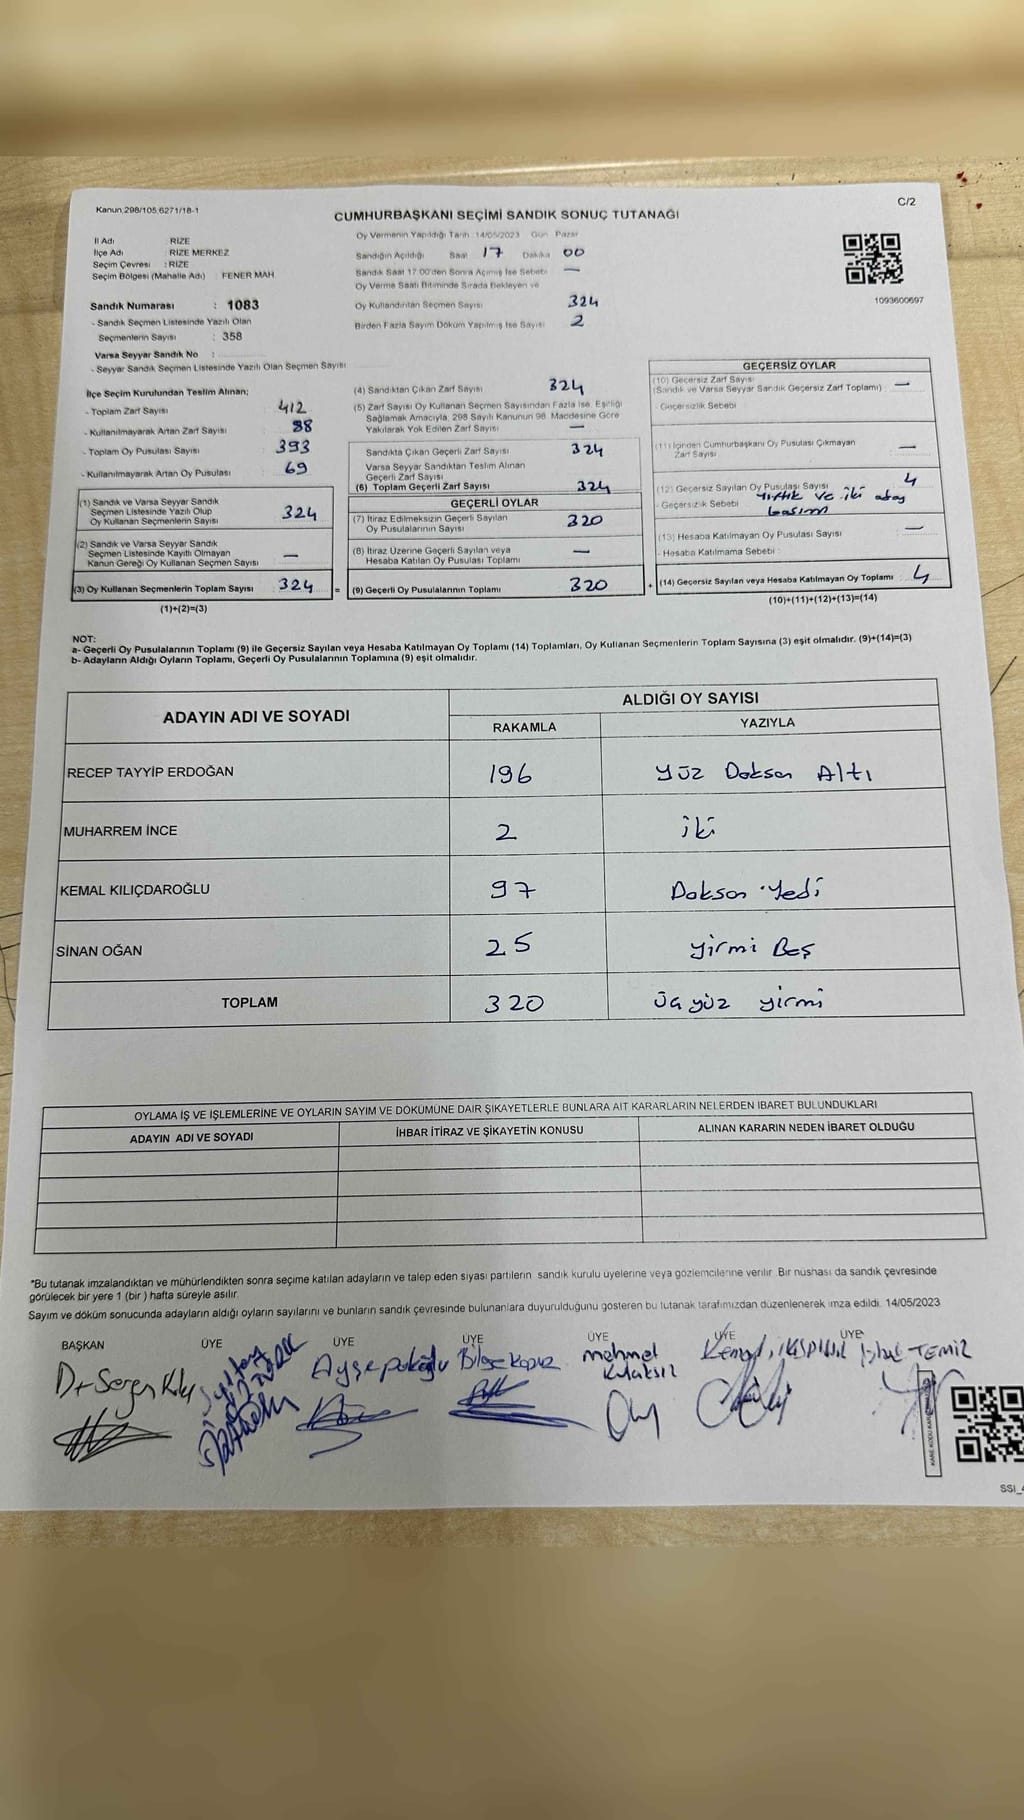 Kanun:298/105,6271/18-1
C/2
CUMHURBAŞKANI SEÇİMİ SANDIK SONUÇ TUTANAĞI
Oy Vermenin Yapıldığı Tarih :14/05/2023 Gün : Pazar
İl Adı : RİZE
İlçe Adı : RİZE MERKEZ
Seçim Çevresi : RİZE
Seçim Bölgesi (Mahalle Adı) : FENER MAH
Sandığın Açıldığı Saat 17 Dakika 00
Sandık Saat 17:00'den Sonra Açılmış İse Sebebi —
Oy Verme Saati Bitiminde Sırada Bekleyen ve
Oy Kullandırılan Seçmen Sayısı 324
Birden Fazla Sayım Döküm Yapılmış İse Sayısı 2
1093600697
Sandık Numarası : 1083
- Sandık Seçmen Listesinde Yazılı Olan
Seçmenlerin Sayısı : 358
Varsa Seyyar Sandık No :
- Seyyar Sandık Seçmen Listesinde Yazılı Olan Seçmen Sayısı
İlçe Seçim Kurulundan Teslim Alınan;
- Toplam Zarf Sayısı 412
- Kullanılmayarak Artan Zarf Sayısı 88
- Toplam Oy Pusulası 393
- Kullanılmayarak Artan Oy Pusulası 69
(1) Sandık ve Varsa Seyyar Sandık
Seçmen Listesinde Yazılı Olup
Oy Kullanan Seçmenlerin Sayısı 324
(2) Sandık ve Varsa Seyyar Sandık
Seçmen Listesinde Kayıtlı Olmayan
Kanun Gereği Oy Kullanan Seçmen Sayısı —
(3) Oy Kullanan Seçmenlerin Toplam Sayısı 324 =
(1)+(2)=(3)
(4) Sandıktan Çıkan Zarf Sayısı 324
(5) Zarf Sayısı Oy Kullanan Seçmen Sayısından Fazla İse, Eşitliği
Sağlamak Amacıyla, 298 Sayılı Kanunun 98. Maddesine Göre
Yakılarak Yok Edilen Zarf Sayısı —
Sandıkta Çıkan Geçerli Zarf Sayısı 324
Varsa Seyyar Sandıktan Teslim Alınan
Geçerli Zarf Sayısı
(6) Toplam Geçerli Zarf Sayısı 324
GEÇERLİ OYLAR
(7) İtiraz Edilmeksizin Geçerli Sayılan
Oy Pusulalarının Sayısı 320
(8) İtiraz Üzerine Geçerli Sayılan veya
Hesaba Katılan Oy Pusulası Toplamı —
(9) Geçerli Oy Pusulalarının Toplamı 320 +
GEÇERSİZ OYLAR
(10) Geçersiz Zarf Sayısı
(Sandık ve Varsa Seyyar Sandık Geçersiz Zarf Toplamı) : —
- Geçersizlik Sebebi
(11) İçinden Cumhurbaşkanı Oy Pusulası Çıkmayan
Zarf Sayısı —
(12) Geçersiz Sayılan Oy Pusulası Sayısı 4
- Geçersizlik Sebebi yırtık ve iki aday
basım
(13) Hesaba Katılmayan Oy Pusulası Sayısı —
- Hesaba Katılmama Sebebi :
(14) Geçersiz Sayılan veya Hesaba Katılmayan Oy Toplamı : 4
(10)+(11)+(12)+(13)=(14)
NOT:
a- Geçerli Oy Pusulalarının Toplamı (9) ile Geçersiz Sayılan veya Hesaba Katılmayan Oy Toplamı (14) Toplamları, Oy Kullanan Seçmenlerin Toplam Sayısına (3) eşit olmalıdır. (9)+(14)=(3)
b- Adayların Aldığı Oyların Toplamı, Geçerli Oy Pusulalarının Toplamına (9) eşit olmalıdır.
ADAYIN ADI VE SOYADI ALDIĞI OY SAYISI
RAKAMLA YAZIYLA
RECEP TAYYİP ERDOĞAN 196 Yüz Doksan Altı
MUHARREM İNCE 2 iki
KEMAL KILIÇDAROĞLU 97 Doksan Yedi
SİNAN OĞAN 25 yirmi Beş
TOPLAM 320 üçyüz yirmi
OYLAMA İŞ VE İŞLEMLERİNE VE OYLARIN SAYIM VE DÖKÜMÜNE DAİR ŞİKAYETLERLE BUNLARA AİT KARARLARIN NELERDEN İBARET BULUNDUKLARI
ADAYIN ADI VE SOYADI İHBAR İTİRAZ VE ŞİKAYETİN KONUSU ALINAN KARARIN NEDEN İBARET OLDUĞU
*Bu tutanak imzalandıktan ve mühürlendikten sonra seçime katılan adayların ve talep eden siyasi partilerin sandık kurulu üyelerine veya gözlemcilerine verilir. Bir nüshası da sandık çevresinde
görülecek bir yere 1 (bir) hafta süreyle asılır.
Sayım ve döküm sonucunda adayların aldığı oyların sayılarını ve bunların sandık çevresinde bulunanlara duyurulduğunu gösteren bu tutanak tarafımızdan düzenlenerek imza edildi. 14/05/2023
BAŞKAN ÜYE ÜYE ÜYE ÜYE ÜYE ÜYE
mehmet
TEMİZ